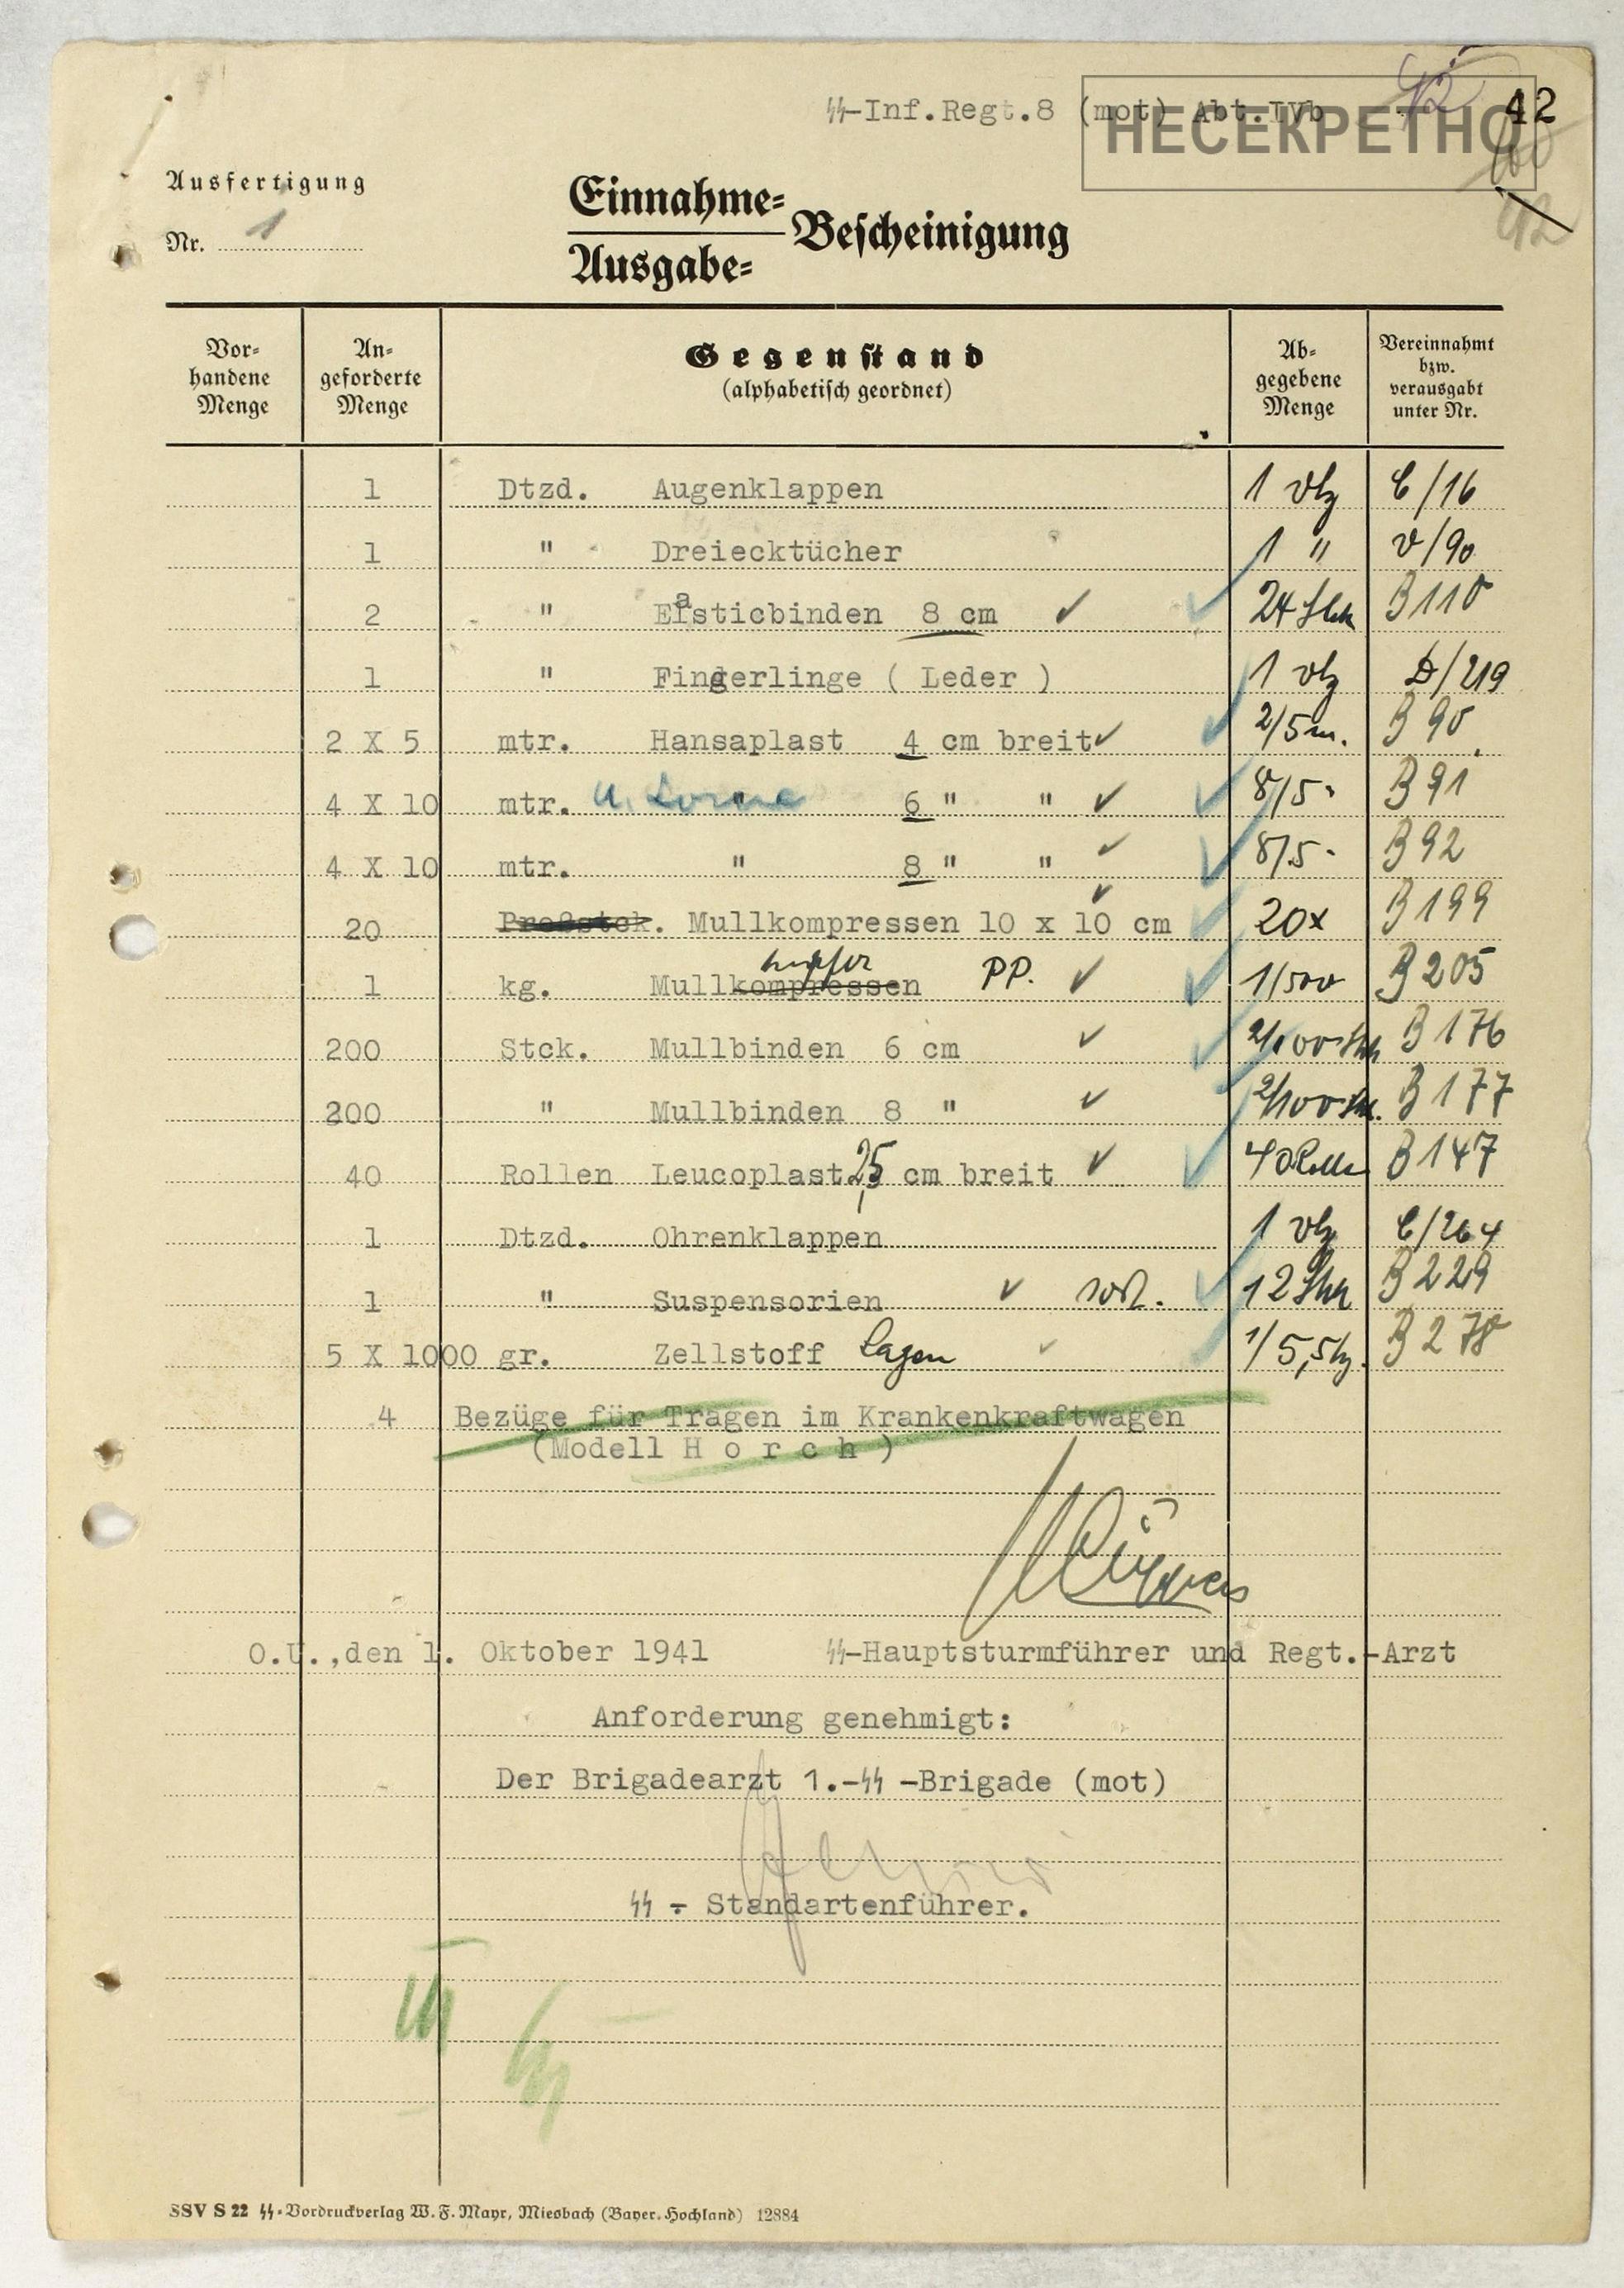 ᛋᛋ-Inf.Regt.8 (mot) Abt.IVb
НЕСЕКРЕТНО
42
42
42
Ausfertigung
Nr. 1
Einnahme-
Ausgabe-
Bescheinigung
Vor-
handene
Menge
An-
geforderte
Menge
Gegenstand
(alphabetisch geordnet)
Ab-
gegebene
Menge
Vereinnahmt
bzw.
verausgabt
unter Nr.
1 Dtzd. Augenklappen 1 C/16
1 " Dreiecktücher 1 " V/90
2 " Elasticbinden 8 cm ✓ 24 Stck B 110
1 " Fingerlinge ( Leder ) 1 D/219
2 X 5 mtr. Hansaplast 4 cm breit ✓ 2/5 m. B 90
4 X 10 mtr. " 6 " " ✓ 8/5 - B 91
4 X 10 mtr. " 8 " " ✓ 8/5 - B 92
20 Preßstck. Mullkompressen 10 x 10 cm ✓ 20x B 199
1 kg. Mullkompressen tupfer PP. ✓ 1/500 B 205
200 Stck. Mullbinden 6 cm ✓ 2/100 Stk B 176
200 " Mullbinden 8 " ✓ 2/100 Stk. B 177
40 Rollen Leucoplast 2,5 cm breit ✓ 40 Rolle B 147
1 Dtzd. Ohrenklappen 1 C/264
1 " Suspensorien ✓ sort. 12 Stk B 229
5 X 1000 gr. Zellstoff Lagen ✓ 1/5,5 kg. B 278
4 Bezüge für Tragen im Krankenkraftwagen
(Modell H o r c h )
O.U.,den 1. Oktober 1941 ᛋᛋ-Hauptsturmführer und Regt.-Arzt
Anforderung genehmigt:
Der Brigadearzt 1.-ᛋᛋ -Brigade (mot)
ᛋᛋ - Standartenführer.
SSV S 22 ᛋᛋ-Vordruckverlag W. F. Mayr, Miesbach (Bayer. Hochland) 12884